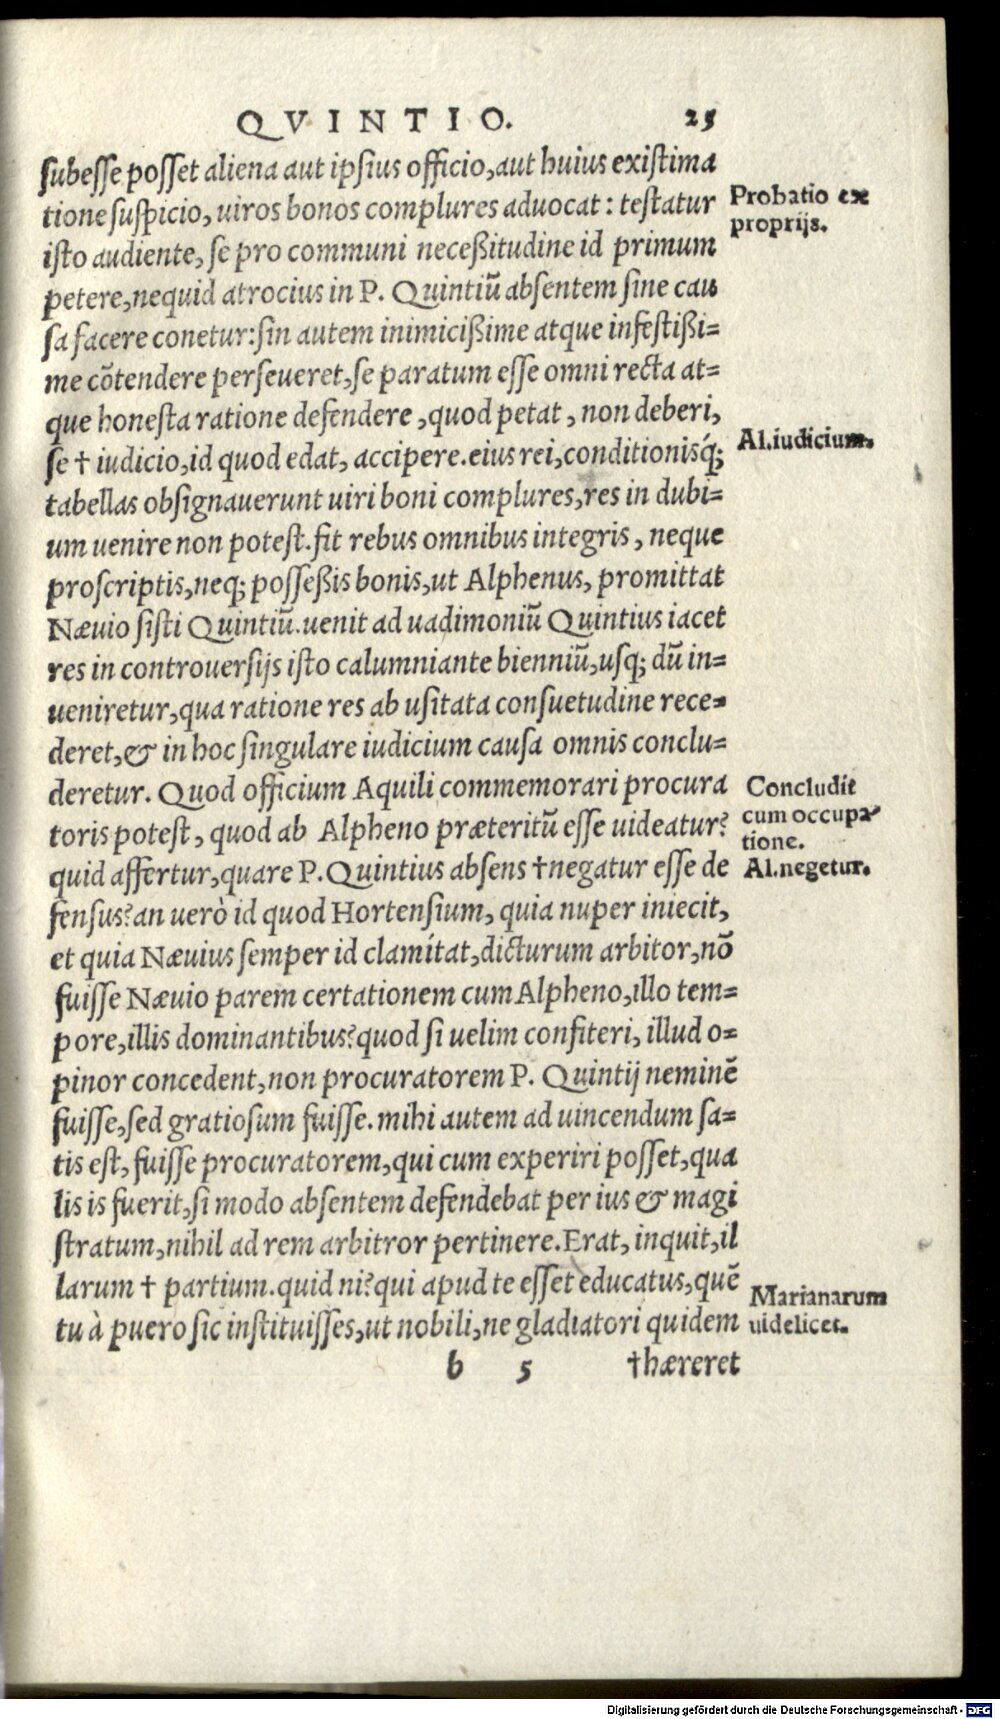 QVINTIO. 25
subesse posset aliena aut ipsius officio, aut huius existima
tione suspicio, uiros bonos complures aduocat: testatur
Probatio ex
proprijs.
isto audiente, se pro communi neceßitudine id primum
petere, nequid atrocius in P. Quintiũ absentem sine cau
sa facere conetur: sin autem inimicißime atque infestißi=
me cõtendere perseueret, se paratum esse omni recta at=
que honesta ratione defendere, quod petat, non deberi,
Al. iudicium.
se † iudicio, id quod edat, accipere. eius rei, conditionisq́;
tabellas obsignauerunt uiri boni complures, res in dubi=
um uenire non potest. fit rebus omnibus integris, neque
proscriptis, neq; posseßis bonis, ut Alphenus, promittat
Næuio sisti Quintiũ. uenit ad uadimoniũ Quintius iacet
res in controuersijs isto calumniante bienniũ, usq; dũ in=
ueniretur, qua ratione res ab usitata consuetudine rece=
deret, & in hoc singulare iudicium causa omnis conclu=
deretur. Quod officium Aquili commemorari procura
Concludit
cum occupa
tione.
toris potest, quod ab Alpheno præteritũ esse uideatur?
quid affertur, quare P. Quintius absens † negatur esse de
Al. negetur.
fensus? an uerò id quod Hortensium, quia nuper iniecit,
et quia Næuius semper id clamítat, dicturum arbitor, nõ
fuisse Næuio parem certationem cum Alpheno, illo tem=
pore, illis dominantibus? quod si uelim confiteri, illud o=
pinor concedent, non procuratorem P. Quintij neminẽ
fuisse, sed gratiosum fuisse. mihi autem ad uincendum sa=
tis est, fuisse procuratorem, qui cum experiri posset, qua
lis is fuerit, si modo absentem defendebat per ius & magi
stratum, nihil ad rem arbitror pertinere. Erat, inquit, il
larum † partium. quid ni? qui apud te esset educatus, quẽ
Marianarum
uidelicet.
tu à puero sic instituisses, ut nobili, ne gladiatori quidem
b 5 † hæreret
Digitalisierung gefördert durch die Deutsche Forschungsgemeinschaft - DFG